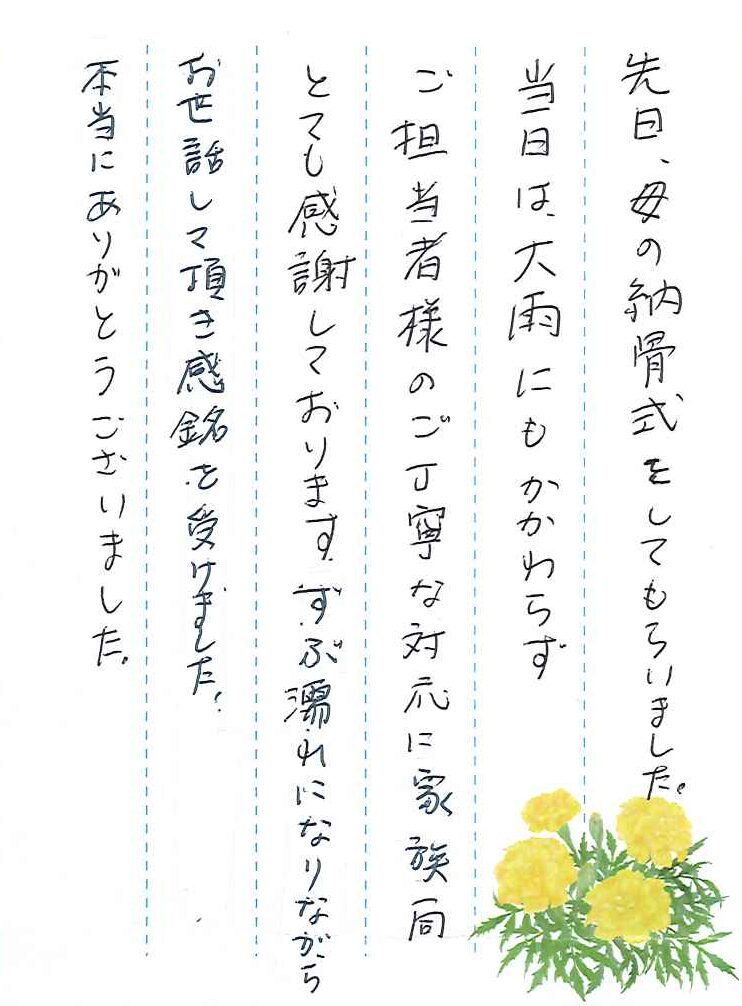 先日、母の納骨式をしてもらいました。
当日は、大雨にもかかわらず
ご担当者様のご丁寧な対応に家族一同
とても感謝しております。ずぶ濡れになりながら
お世話して頂き感銘を受けました。
本当にありがとうございました。